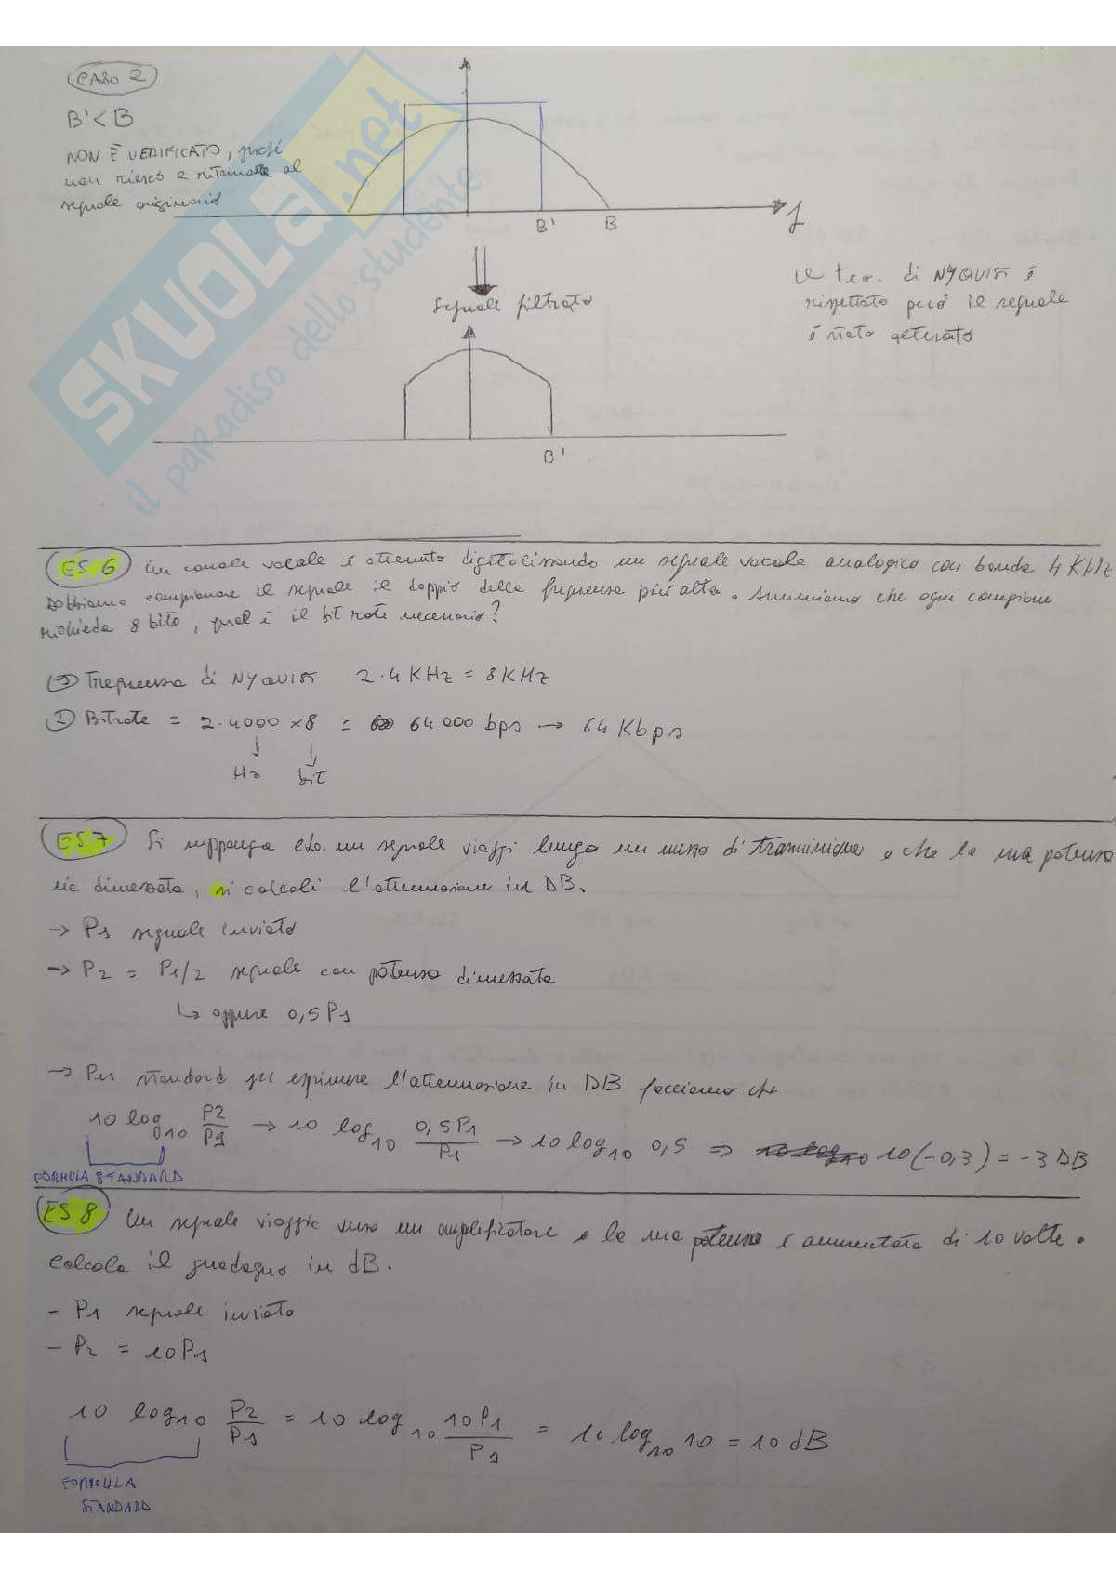 CASO 2
B' < B
NON È VERIFICATO, poiché
non riesco a ritornare al
segnale originario
B' B f
Segnale filtrato
Il teo. di NYQUIST è
rispettato però il segnale
è stato alterato
B'
SKUOLA.net
il paradiso dello studente
ES 6 Un canale vocale è ottenuto digitalizzando un segnale vocale analogico con banda 4 KHz
Dobbiamo campionare il segnale il doppio della frequenza più alta. Assumiamo che ogni campione
richieda 8 bits, qual è il bit rate necessario?
Frequenza di NYQUIST 2·4 KHz = 8 KHz
Bitrate = 2·4000 x8 = 64 000 bps → 64 Kbps
Hz bit
ES 7 Si supponga che un segnale viaggi lungo un mezzo di trasmissione e che la sua potenza
sia dimezzata, si calcoli l'attenuazione in DB.
→ P1 segnale inviato
→ P2 = P1/2 segnale con potenza dimezzata
↳ oppure 0,5 P1
→ Per standard per esprimere l'attenuazione in DB facciamo
10 log10 P2/P1 → 10 log10 0,5P1/P1 → 10 log10 0,5 ⇒ 10(-0,3) = -3 DB
FORMULA STANDARD
ES 8 Un segnale viaggia verso un amplificatore e la sua potenza è aumentata di 10 volte.
Calcola il guadagno in dB.
- P1 segnale inviato
- P2 = 10P1
10 log10 P2/P1 = 10 log10 10P1/P1 = 10 log10 10 = 10 dB
FORMULA
STANDARD